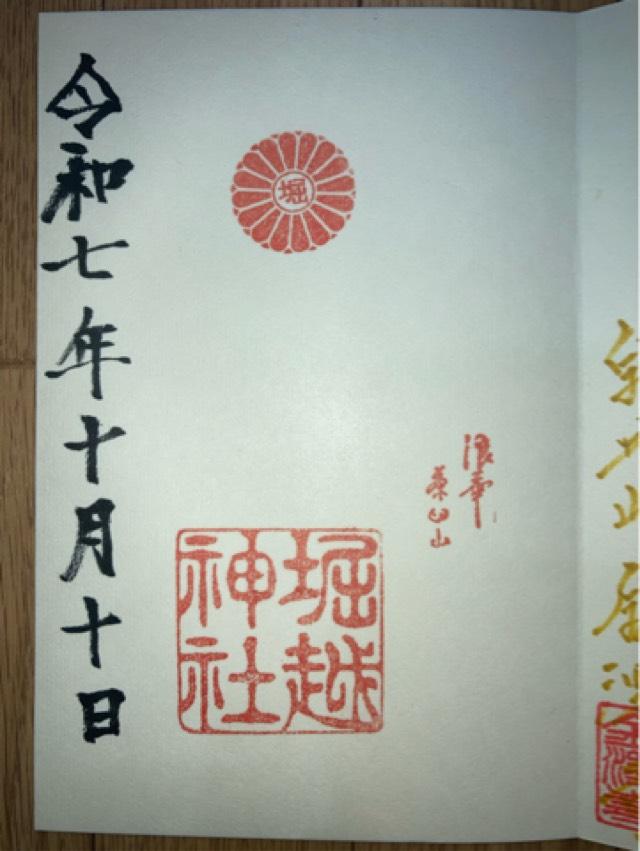 浪華
茶臼山
堀
堀越
神社
令和七年十月十日